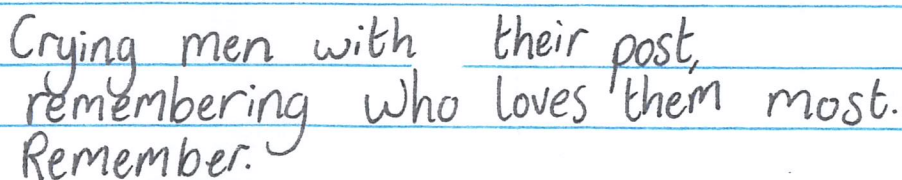 Crying men with their post,
remembering who loves them most.
Remember.